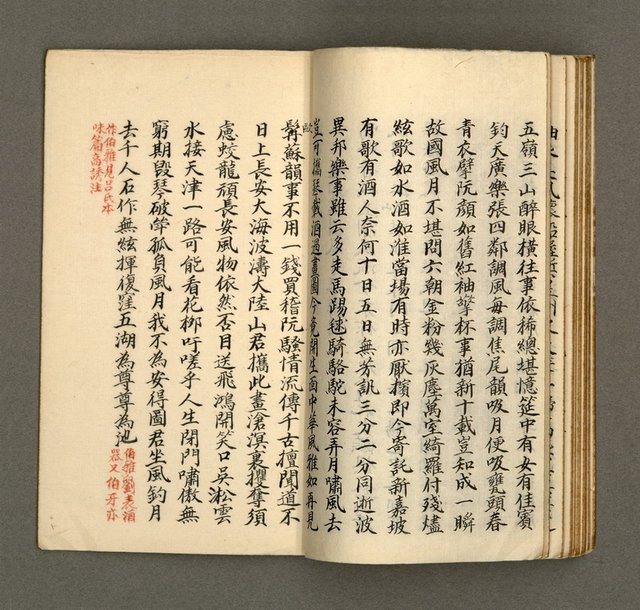 五嶺三山醉眼橫往事依稀總堪憶筵中有女有佳賓
鈞天廣樂張四鄰調風每調焦尾韻吸月便吸甕頭春
青衣擘阮顏如舊紅袖擎杯事猶新十載豈知成一瞬
故國風月不堪問六朝金粉幾灰塵萬室綺羅付殘燼
絃歌如水酒如淮當場有時亦厭擯即今寄託新嘉坡
有歌有酒人奈何十日五日無芳訊三分二分同逝波
異邦樂事雖云多走馬踢毬騎駱駝未容弄月嘯風去
豈可攜琴載酒過畫圖今竟開生面中華風雅如再見
歐
髯蘇韻事不用一錢買稽阮騷情流傳千古擅聞道不
日上長安大海波濤大陸山君攜此畫滄溟裏攫奪須
慮蛟龍頑長安風物依然否目送飛鴻開笑口吳淞雲
水接天津一路可能看花柳吁嗟乎人生閉門嘯傲無
窮期毀琴破罇孤負風月我不為安得圖君坐風釣月
去千人石作無絃揮復窪五湖為尊尊為池
伯雅劉表酒
器又伯牙亦
作伯雅見呂氏本
味篇高誘注